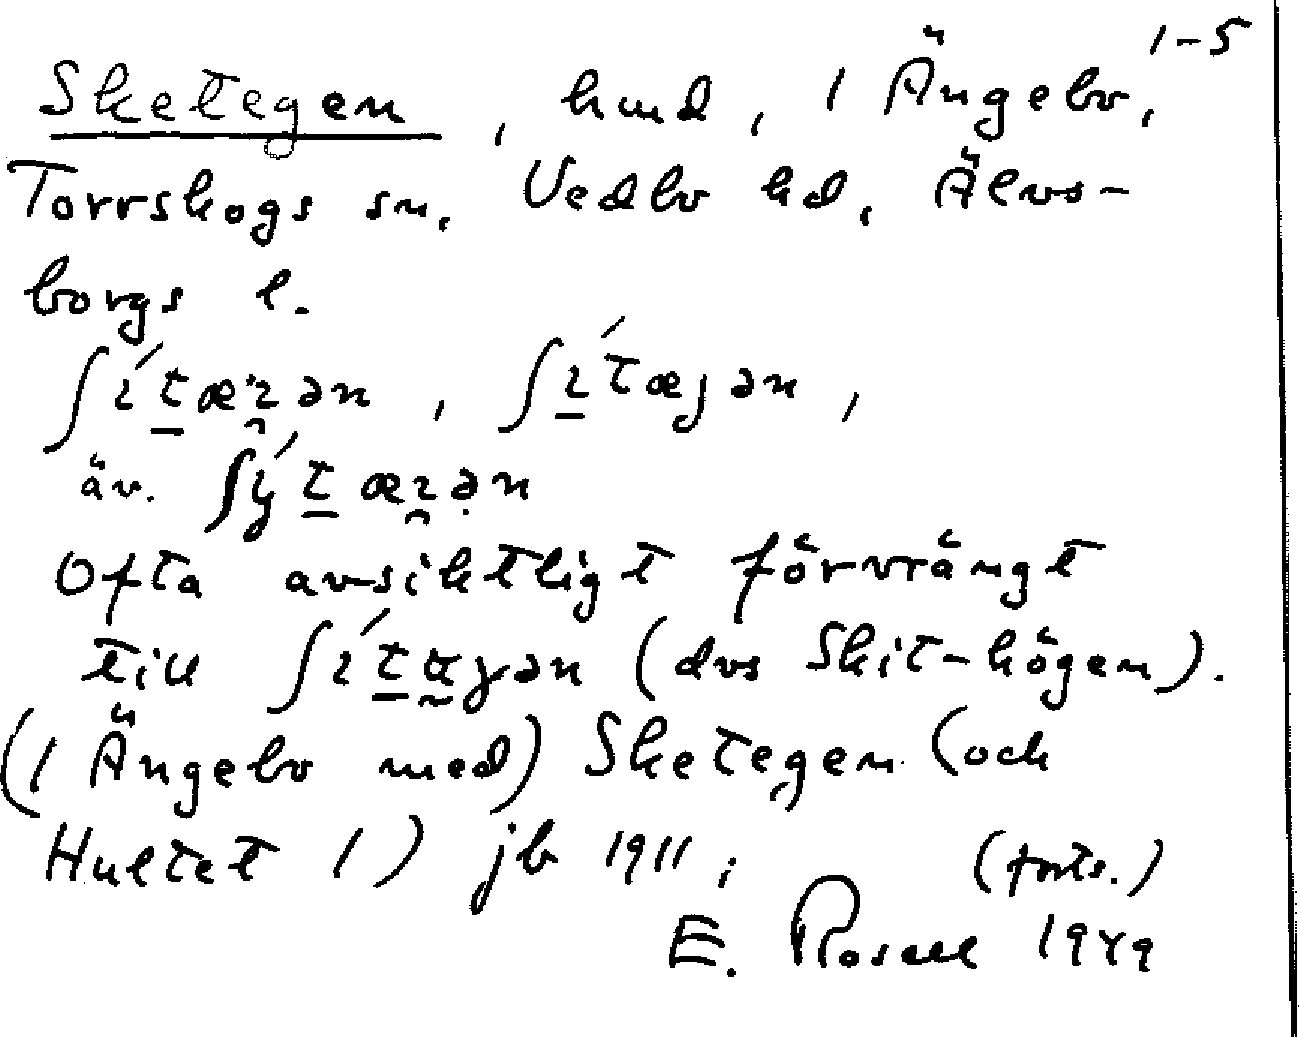 Sketegen, hmd, 1 Ängebo, 1-5
Torrskogs sn, Vedbo hd, Älvs-
borgs l.
äv.
Ofta avsiktligt förvrängt
till (dvs Skit-högen).
(1 Ängebo med) Sketegen (och
Hultet 1) jb 1911; (forts.)
E. Rosell 1949